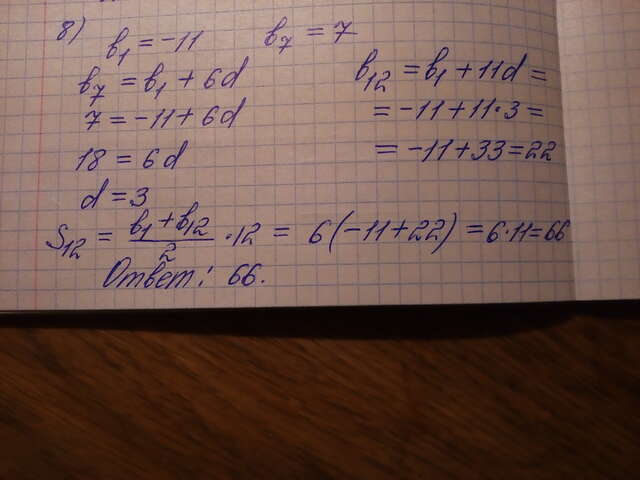 8) b₁ = -11 b₇ = 7
b₇ = b₁ + 6d
7 = -11 + 6d
18 = 6d
d = 3
b₁₂ = b₁ + 11d =
= -11 + 11·3 =
= -11 + 33 = 22
S₁₂ = (b₁ + b₁₂)/2 · 12 = 6(-11 + 22) = 6·11 = 66
Ответ: 66.